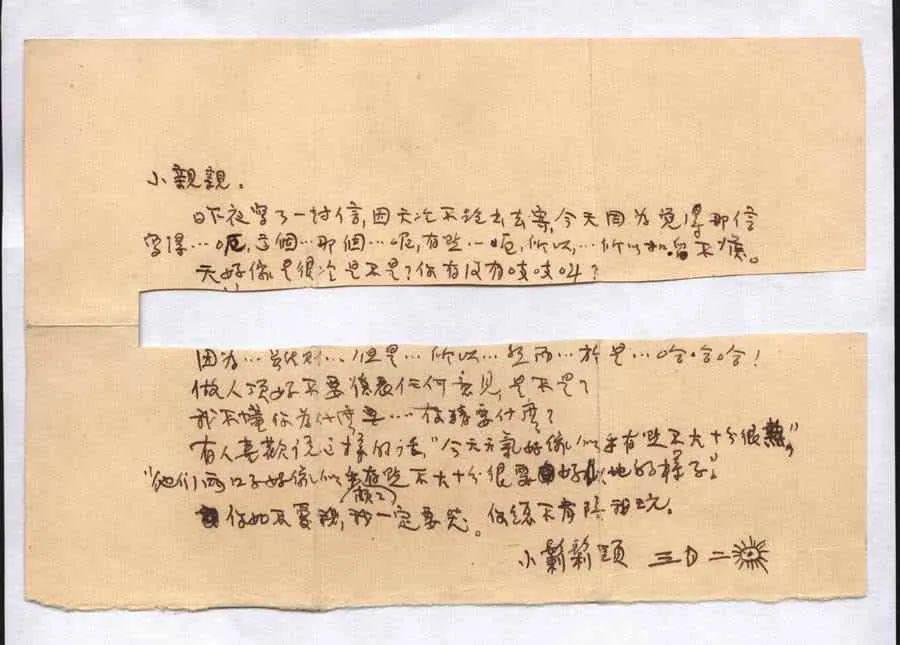 小親親。
昨夜寫了一封信,因天冷不跑出去寄,今天因为覚得那信
寫得…呃,這個…那個…呢,有些…呃,所以…所以扣留不发。
天好像是很冷是不是?你有没有吱吱叫?
因为…雖則…但是…所以…然而…於是…哈哈哈!
做人頂好不要發表任何意見,是不是?
我不懂你为什麼要…
有人喜歡說這樣的话,"今天天氣好像似乎有些不大十分很熱",
"他們两口子好像似乎有些不大十分很要好的樣子"。
你如不愛我,我一定要哭。你總不肯陪我玩。
小鬎鬁頭 三月二